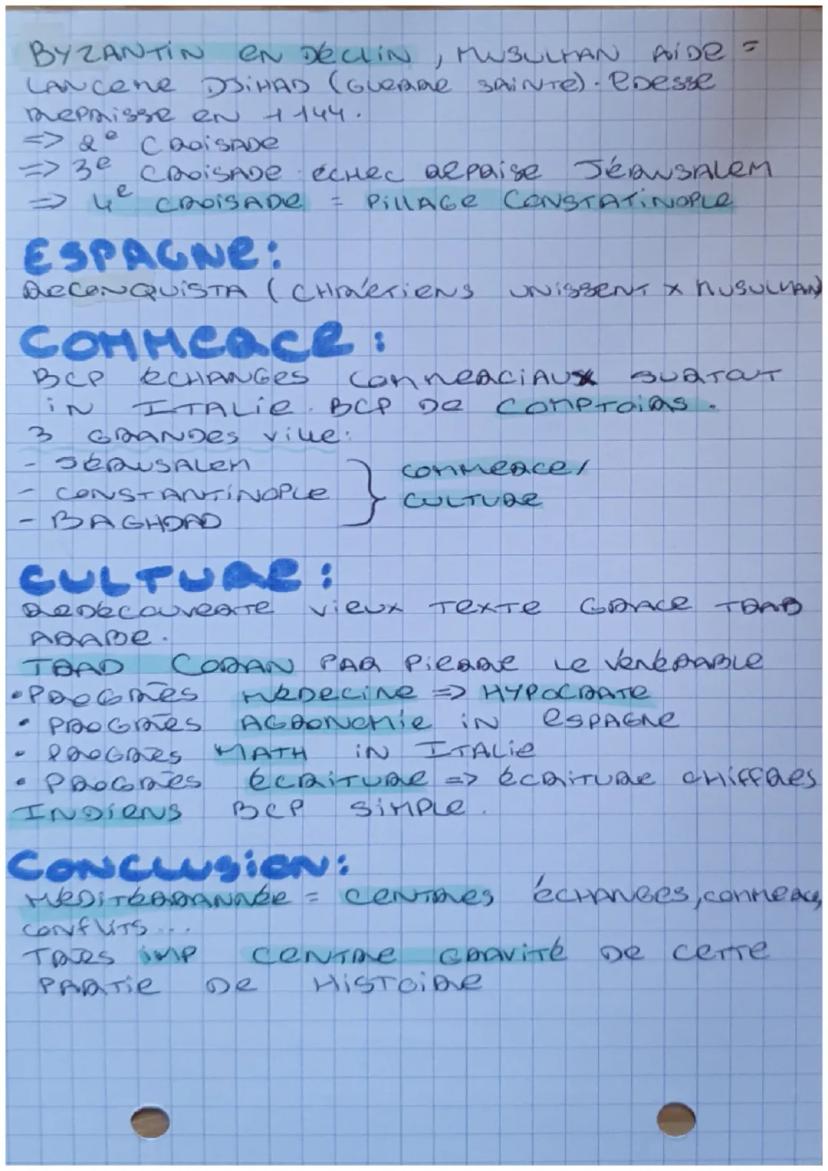 BYZANTIN EN DÉCLIN, MUSULMAN AIDE =
LANCENE DJIHAD (GUERRE SAINTE). EDESSE
REPRISSE EN 1144.
=> 2e CROISADE
=> 3e CROISADE échec REPRISE JÉRUSALEM
=> 4e CROISADE = PILLAGE CONSTATINOPLE
ESPAGNE:
RECONQUISTA (CHRÉTIENS UNISSENT X MUSULMAN)
COMMERCE:
BCP ÉCHANGES COMMERCIAUX SURTOUT
IN ITALIE. BCP DE COMPTOIRS.
3 GRANDES VILLE:
- JÉRUSALEM
- CONSTANTINOPLE } COMMERCE/
- BAGHDAD CULTURE
CULTURE:
REDÉCOUVERTE VIEUX TEXTE GRACE TRAD
ARABE.
TRAD CORAN PAR PIERRE LE VENÉRABLE
• PROGRÈS MÉDECINE => HYPOCRATE
• PROGRÈS AGRONOMIE IN ESPAGNE
• PROGRÈS MATH IN ITALIE
• PROGRÈS ÉCRITURE => ÉCRITURE CHIFFRES
INDIENS BCP SIMPLE.
CONCLUSION:
MÉDITÉRRANNÉE = CENTRES ÉCHANGES, COMMERCE,
CONFLITS...
TRÈS IMP CENTRE GRAVITÉ DE CETTE
PARTIE DE HISTOIRE